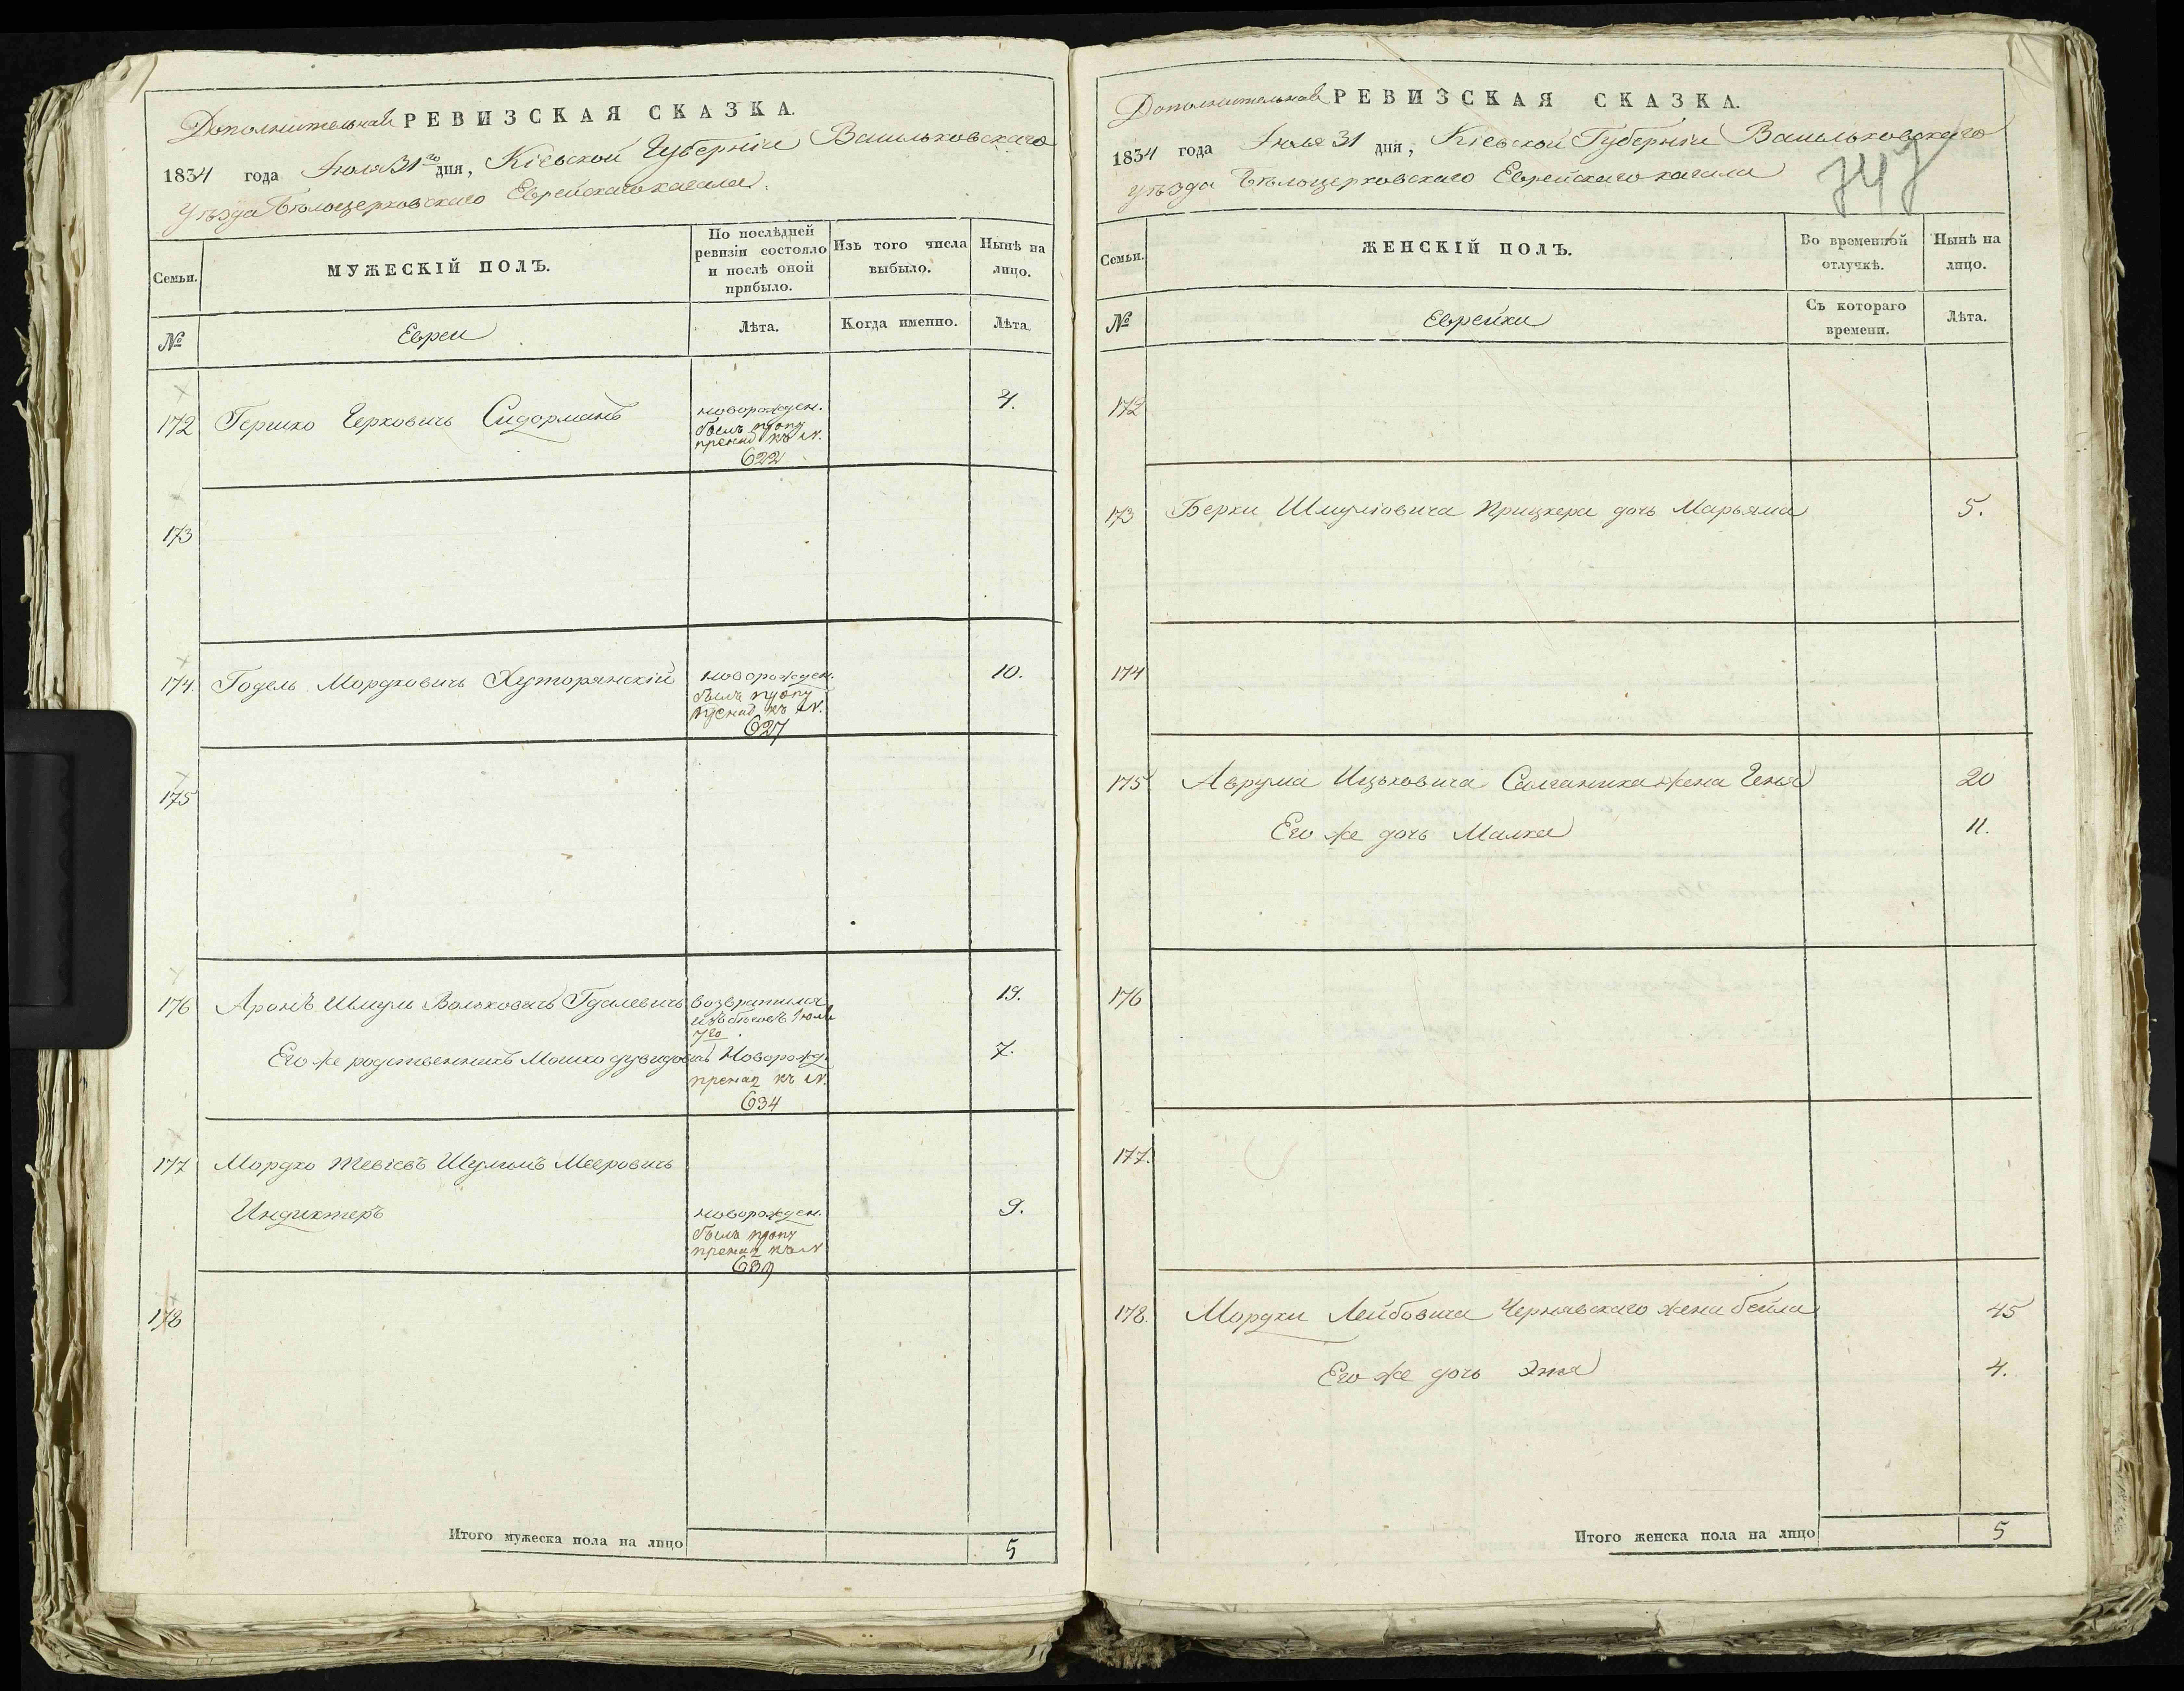 Дополнительная РЕВИЗСКАЯ СКАЗКА.
1834 года Іюля 31го дня, Кіевской Губерніи Васильковскаго
уѣзда Бѣлоцерковскаго Еврейскаго кагала.
Семьи.
МУЖЕСКІЙ ПОЛЪ.
По послѣдней
ревизіи состояло
и послѣ оной
прибыло.
Изъ того числа
выбыло.
Нынѣ на
лицо.
№
Евреи
Лѣта.
Когда именно.
Лѣта.
172 Гершко Берковичь Сидорманъ новорожден. 4.
былъ проп
пренад къ N.
622
173
174. Годель Мордковичь Хуторянскій новорожден. 10.
былъ проп
пренад къ N.
627
175
176 Аронъ Шмуль Вольковичь Гдалевичь возвратился 19.
изъ бѣговъ Іюля
7го
Его же родственникъ Мошко дувидовичь Новорожд. 7.
пренад къ N.
634
177 Мордко Тевіевъ Шулимъ Мееровичь
Индиктеръ новорожден. 9.
былъ проп
пренад къ N
639
178
Итого мужеска пола на лицо 5
Дополнительная РЕВИЗСКАЯ СКАЗКА.
1834 года Іюля 31 дня, Кіевской Губерніи Васильковскаго
уѣзда Бѣлоцерковскаго Еврейскаго кагала
747
Семьи.
ЖЕНСКІЙ ПОЛЪ.
Во временной
отлучкѣ.
Нынѣ на
лицо.
№
Еврейки
Съ котораго
времени.
Лѣта.
172
173 Берки Шмуліовича Прицкера дочь Марьяма 5.
174
175 Аврума Ицьковича Салганика жена Геня 20
Его же дочь Малка 11.
176
177.
178. Мордки Лейбовича Чернявскаго жена бейла 45
Его же дочь Этя 4.
Итого женска пола на лицо 5